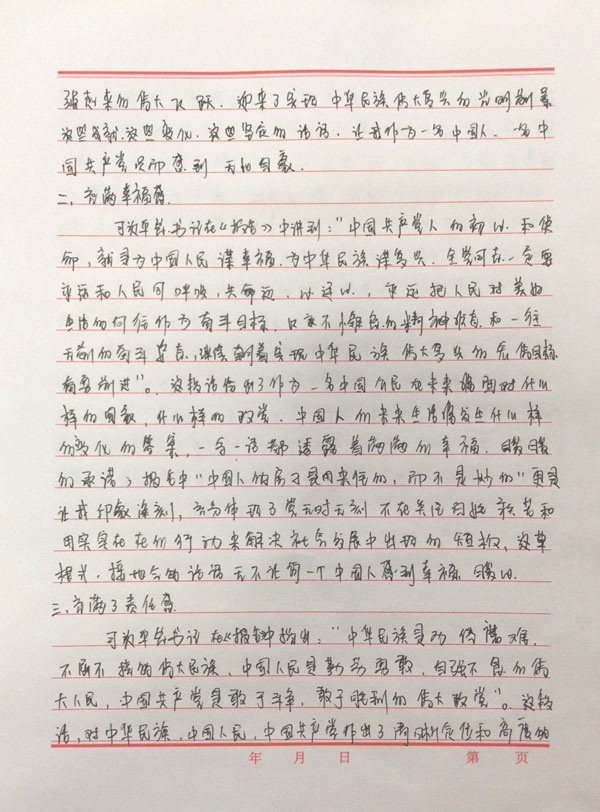 强起来的伟大飞跃，迎来了实现中华民族伟大复兴的光明前景
这些成就、这些变化、这些坚定的话语，让我作为一名中国人、一名中
国共产党员而感到无比自豪。
二、充满幸福感
习近平总书记在《报告》中讲到："中国共产党人的初心和使
命，就是为中国人民谋幸福，为中华民族谋复兴。全党同志一定要
永远和人民同呼吸、共命运、心连心，永远把人民对美好
生活的向往作为奋斗目标，以永不懈怠的精神状态和一往
无前的奋斗姿态，继续朝着实现中华民族伟大复兴的宏伟目标
奋勇前进"。这段话给出了作为一名中国人民在未来将面对什么
样的国家，什么样的政党、中国人的未来生活将发生什么样
的变化的答案，一字一语都透露着满满的幸福、暖暖
的承诺；报告中"中国人的房子是用来住的，而不是炒的"更是
让我印象深刻，充分体现了党无时无刻不在关注百姓疾苦和
用实实在在的行动来解决社会发展中出现的短板，这些
接地气的话语无不让每一个中国人感到幸福、暖心。
三、充满了责任感
习近平总书记在《报告》中指出："中华民族是历经磨难、
不屈不挠的伟大民族，中国人民是勤劳勇敢、自强不息的伟
大人民，中国共产党是敢于斗争、敢于胜利的伟大政党"。这段
话，对中华民族、中国人民、中国共产党作出了清晰定位和高度的
年 月 日 第 页